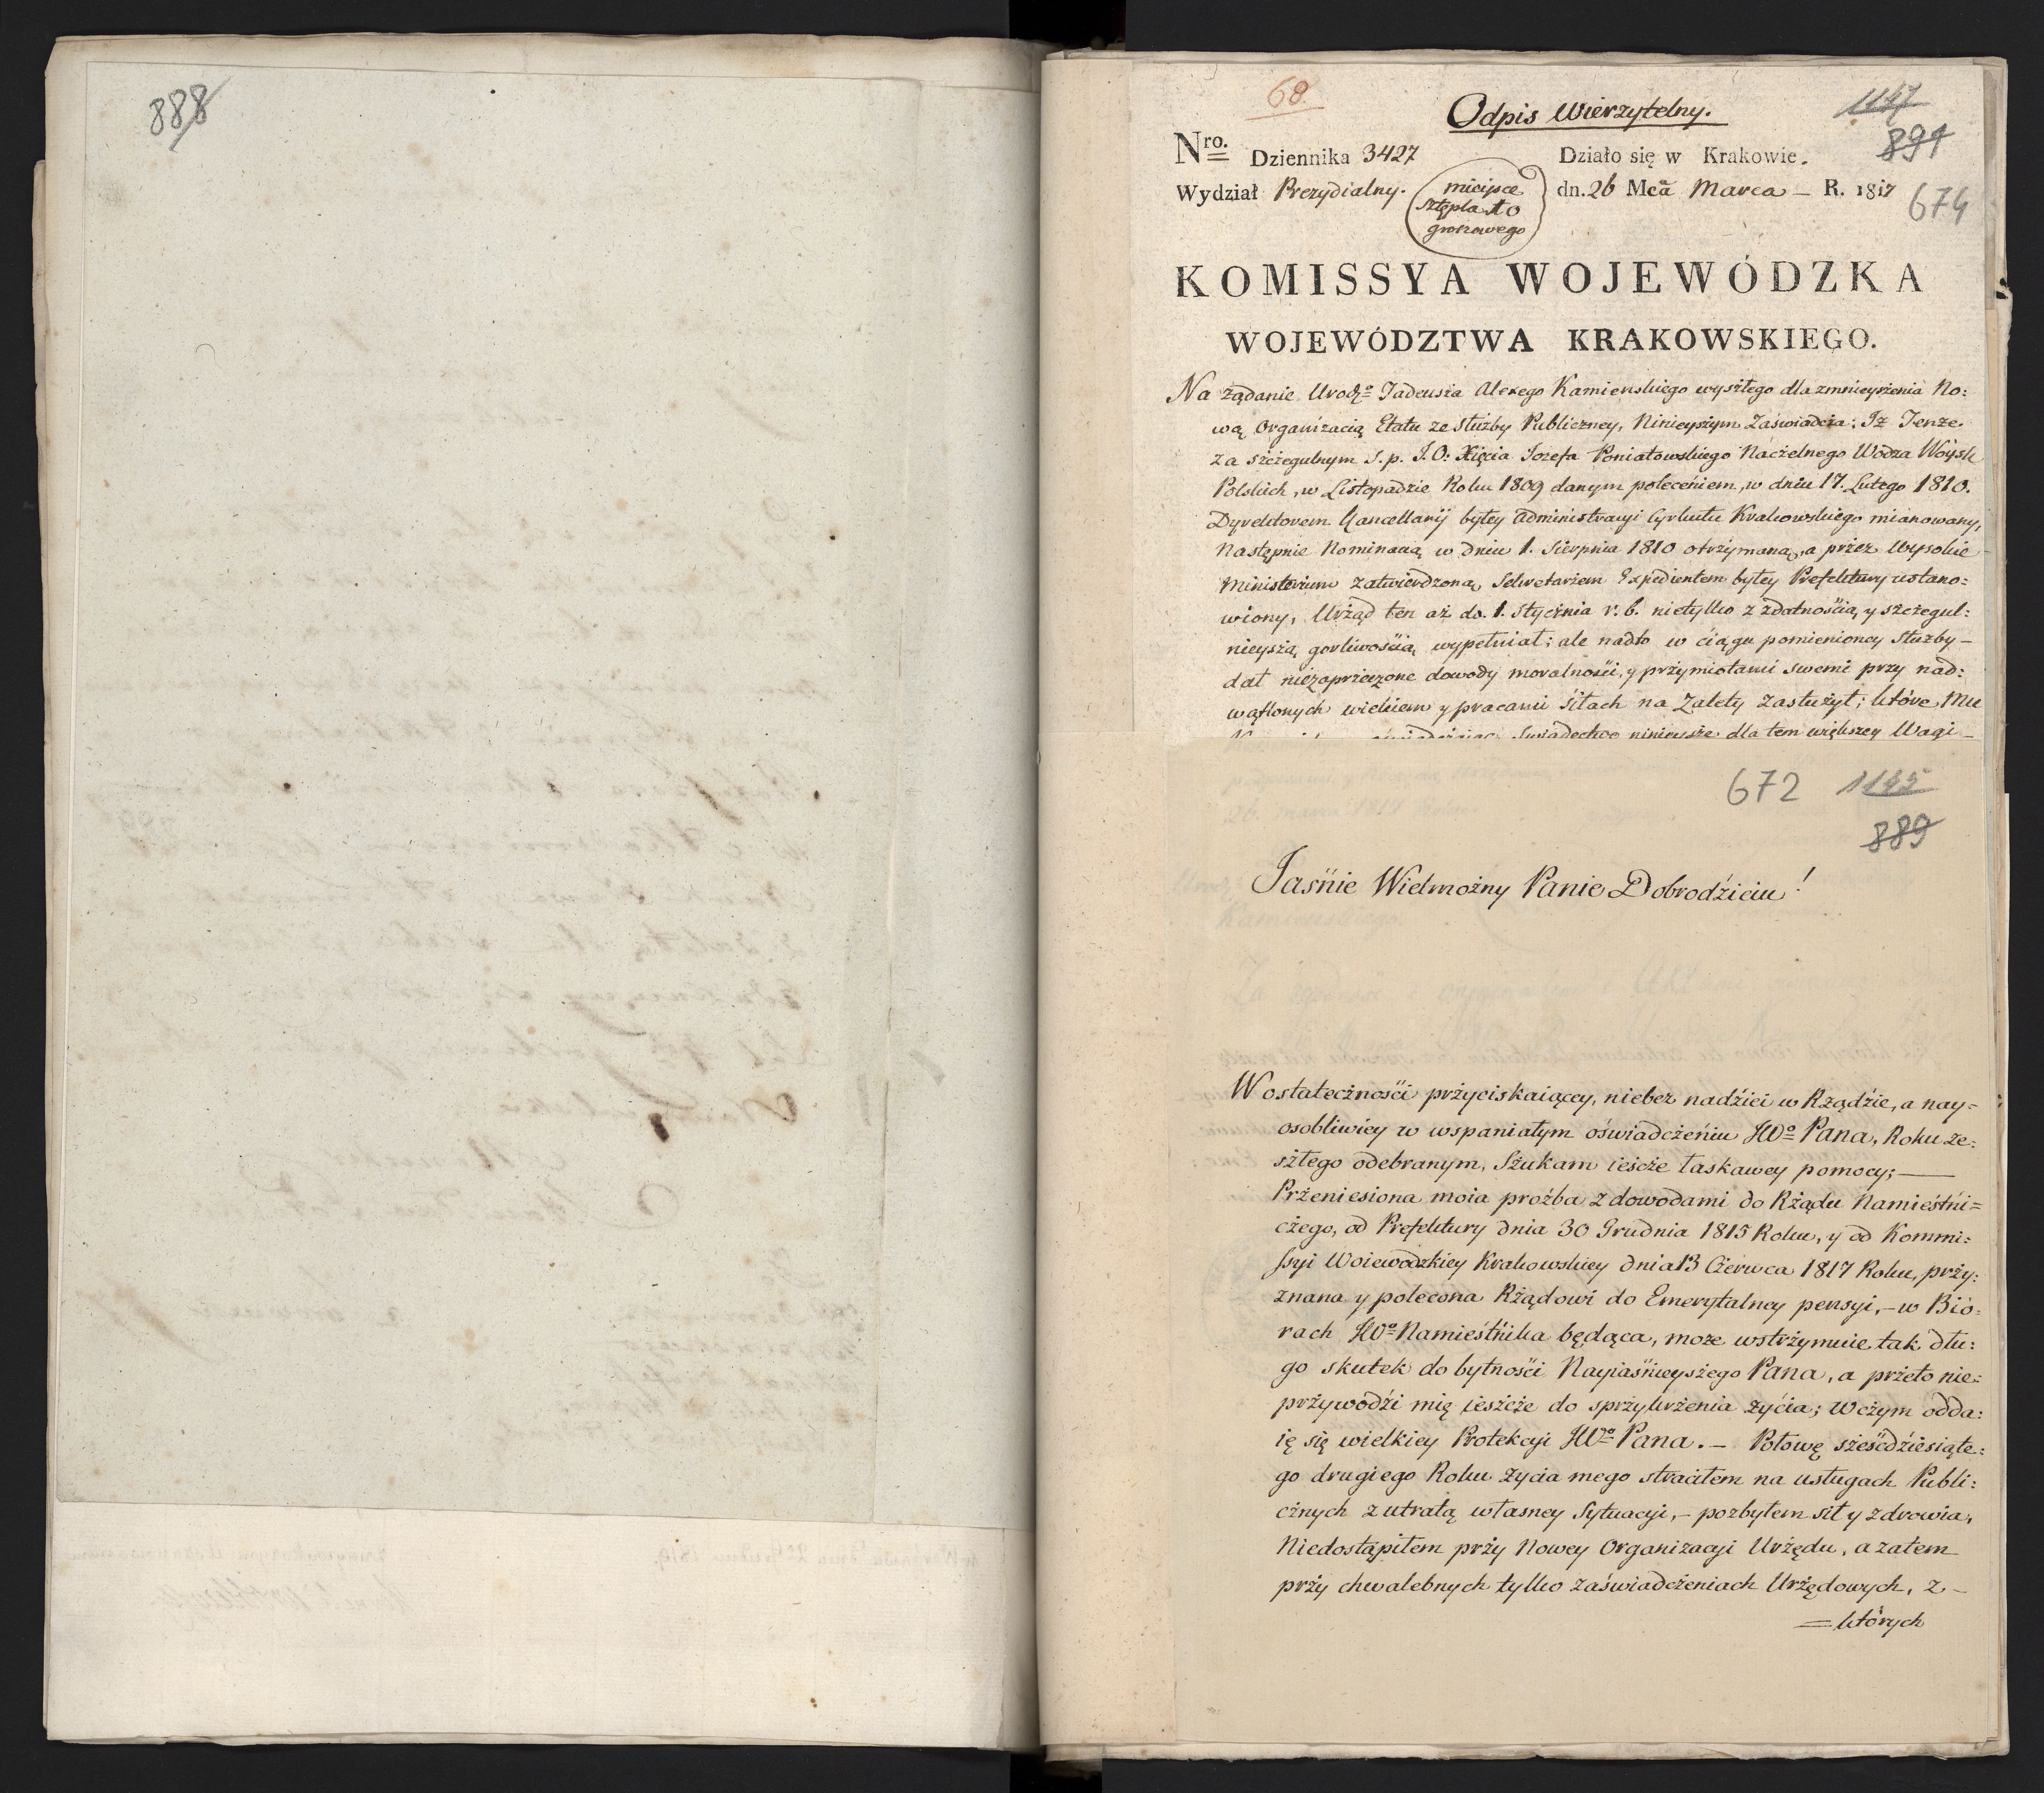 888
68.
Odpis Wierzytelny.
1147
891
674
Nro. Dziennika 3427
Działo się w Krakowie.
Wydział Prezydialny.
miejsce
sztępla 10
groszowego
dn. 26 Mca Marca – R. 1817
KOMISSYA WOJEWÓDZKA
WOJEWÓDZTWA KRAKOWSKIEGO.
Na żądanie Urodzo Tadeusza Alexego Kamienskiego wyszłego dla zmnieyszenia No:
wą Organizacią Etatu ze służby Publiczney, Ninieyszym Zaświadcza: Iż Tenże
za szczegulnym S. p. J. O: Xięcia Jozefa Poniatowskiego Naczelnego Wodza Woysk
Polskich, w Listopadzie Roku 1809 danym poleceniem, w dniu 17. Lutego 1810.
Dyrektorem Kancellaryi byłey Administracyi Cyrkułu Krakowskiego mianowany,
Następnie Nominacią w dniu 1. Sierpnia 1810 otrzymaną, a przez Wysokie
Ministerium zatwierdzoną, Sekretarzem Expedientem byłey Prefektury ustano:
wiony, Urząd ten aż do 1. Stycznia r. b. nietylko z zdatnością y szczegul:
nieyszą gorliwością wypełniał; ale nadto w ciągu pomienioney służby –
dał niezaprzeczone dowody moralności, y przymiotami swemi przy nad:
wątlonych wiekiem y pracami siłach na Zalety zasłużył; które Mu
Swiadectwo ninieysze dla tem większey Wagi –
672 1145
889
Jaśnie Wielmożny Panie Dobrodzieiu!
W ostateczności przyciskaiącey, niebez nadziei w Rządzie, a nay=
osobliwiey w wspaniałym oświadczeniu JWo Pana, Roku ze:
szłego odebranym, Szukam iescze łaskawey pomocy; —
Przeniesiona moia proźba z dowodami do Rządu Namieśtni=
czego, od Prefektury dnia 30 Grudnia 1815 Roku, y od Kommi:
ssyi Woiewodzkiey Krakowskiey dnia 13 Czerwca 1817 Roku, przy:
znana y polecona Rządowi do Emerytalney pensyi, – w Bió:
rach JWo Namieśtnika będąca, może wstrzymuie tak dłu:
go skutek do bytności Nayiaśnieyszego Pana, a przeto nie:
przywodzi mię ieszcze do sprzykrzenia życia; w czym odda:
ię się wielkiey Protekcyi JWo Pana. – Połowę sześćdziesiąte:
go drugiego Roku życia mego straciłem na usługach Publi:
cznych z utratą własney Sytuacyi, – pozbyłem sił y zdrowia,
Niedostąpiłem przy Nowey Organizacyi Urzędu, a zatem
przy chwalebnych tylko zaświadczeniach Urzędowych, z –
= których